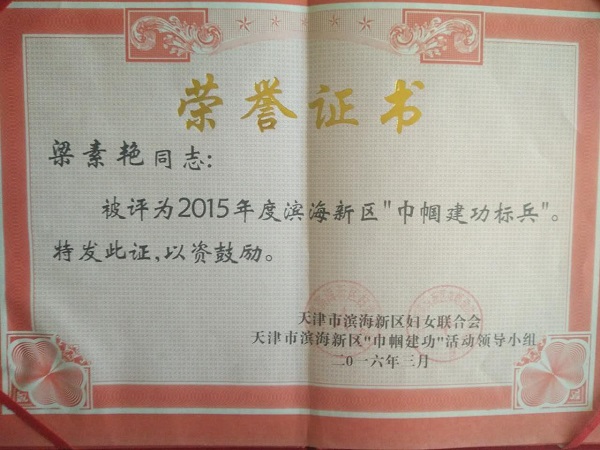 荣誉证书
梁素艳同志:
被评为2015年度滨海新区"巾帼建功标兵"。
特发此证,以资鼓励。
天津市滨海新区妇女联合会
天津市滨海新区"巾帼建功"活动领导小组
二〇一六年三月